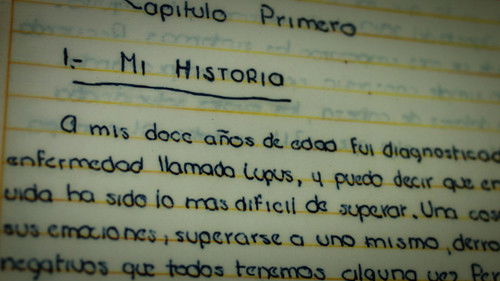 Capitulo Primero
1.- MI HISTORIA
A mis doce años de edad fui diagnosticad
enfermedad llamada lupus, y puedo decir que en
vida ha sido lo mas dificil de superar. Una cos
sus emociones, superarse a uno mismo, derro
negativos que todos tenemos alguna vez Per